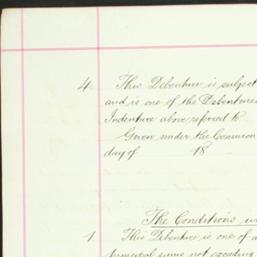 4. This Debenture is subject
and is one of the Debentures
Indenture above referred to
Given under the Common
day of 18
The Conditions
1. This Debenture is one of a
principal sums not exceeding